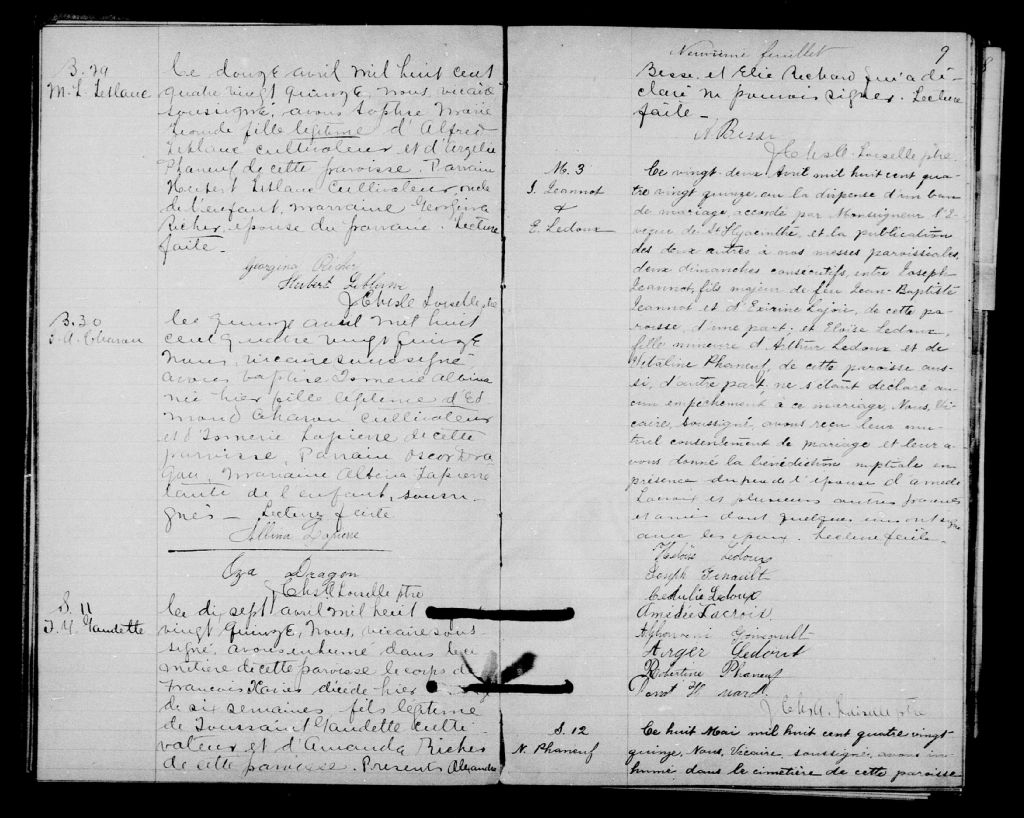 B. 29
M. L. Leblanc
Le douze avril mil huit cent
quatre vingt quinze, nous, vicaire
soussigné, avons baptisé Marie
fille légitime d'Alfred
Leblanc cultivateur et d'Azélie
Phaneuf de cette paroisse. Parrain
Hubert Leblanc cultivateur, oncle
de l'enfant, marraine Georgina
Richer, épouse du parrain. Lecture
faite.
Georgina Richer
Hubert Leblanc
Loiselle, ptre
B. 30
Charron
Le quinze avril mil huit
cent quatre vingt quinze
Nous, vicaire soussigné
avons baptisé Albina
née hier fille légitime d'Ed
mond Charron cultivateur
et d' Lapierre de cette
paroisse, Parrain Oscar Dra
gon, Marraine Albina Lapierre
tante de l'enfant, soussi-
gnés — Lecture faite
Albina Lapierre
Oza Dragon
Loiselle ptre
S. 11
Gaudette
Le dix sept avril mil huit
vingt quinze, Nous, vicaire sous-
signé, avons inhumé dans le ci
metière de cette paroisse le corps de
François Xavier décédé hier
de six semaines, fils légitime
de Toussaint Gaudette culti-
vateur et d'Amanda Richer
de cette paroisse. Présents Alexandre
Neuvième feuillet
9
Besse, et Elie Richard qui a dé-
claré ne pouvoir signer. Lecture
faite —
A Besse
Loiselle ptre
M. 3
J. Jeannot
&
E. Ledoux
Ce vingt-deux Avril mil huit cent qua-
tre vingt quinze, vu la dispense d'un ban
de mariage, accordé par Monseigneur l'É-
vêque de St Hyacinthe, et la publication
des deux autres à nos messes paroissiales,
deux dimanches consécutifs, entre Joseph
Jeannot, fils majeur de feu Jean-Baptiste
Jeannot et d' Lajoie, de cette pa-
roisse, d'une part; et Eloïse Ledoux,
fille mineure d'Arthur Ledoux et de
Vitaline Phaneuf, de cette paroisse aus-
si, d'autre part, ne s'étant déclaré au-
cun empêchement à ce mariage, Nous, Vi-
caire, soussigné, avons reçu leur mu-
tuel consentement de mariage et leur a-
vons donné la bénédiction nuptiale en
présence du père de l'épouse d'Amédé
Lacroix et plusieurs autres parents
et amis dont quelques uns ont signé
avec les époux. Lecture faite.
Ledoux
Joseph
Ledoux
Amédée Lacroix
Phaneuf
Loiselle ptre
S. 12
N. Phaneuf
Ce huit Mai mil huit cent quatre vingt
quinze, Nous, Vicaire, soussigné, avons in-
humé, dans le cimetière de cette paroisse